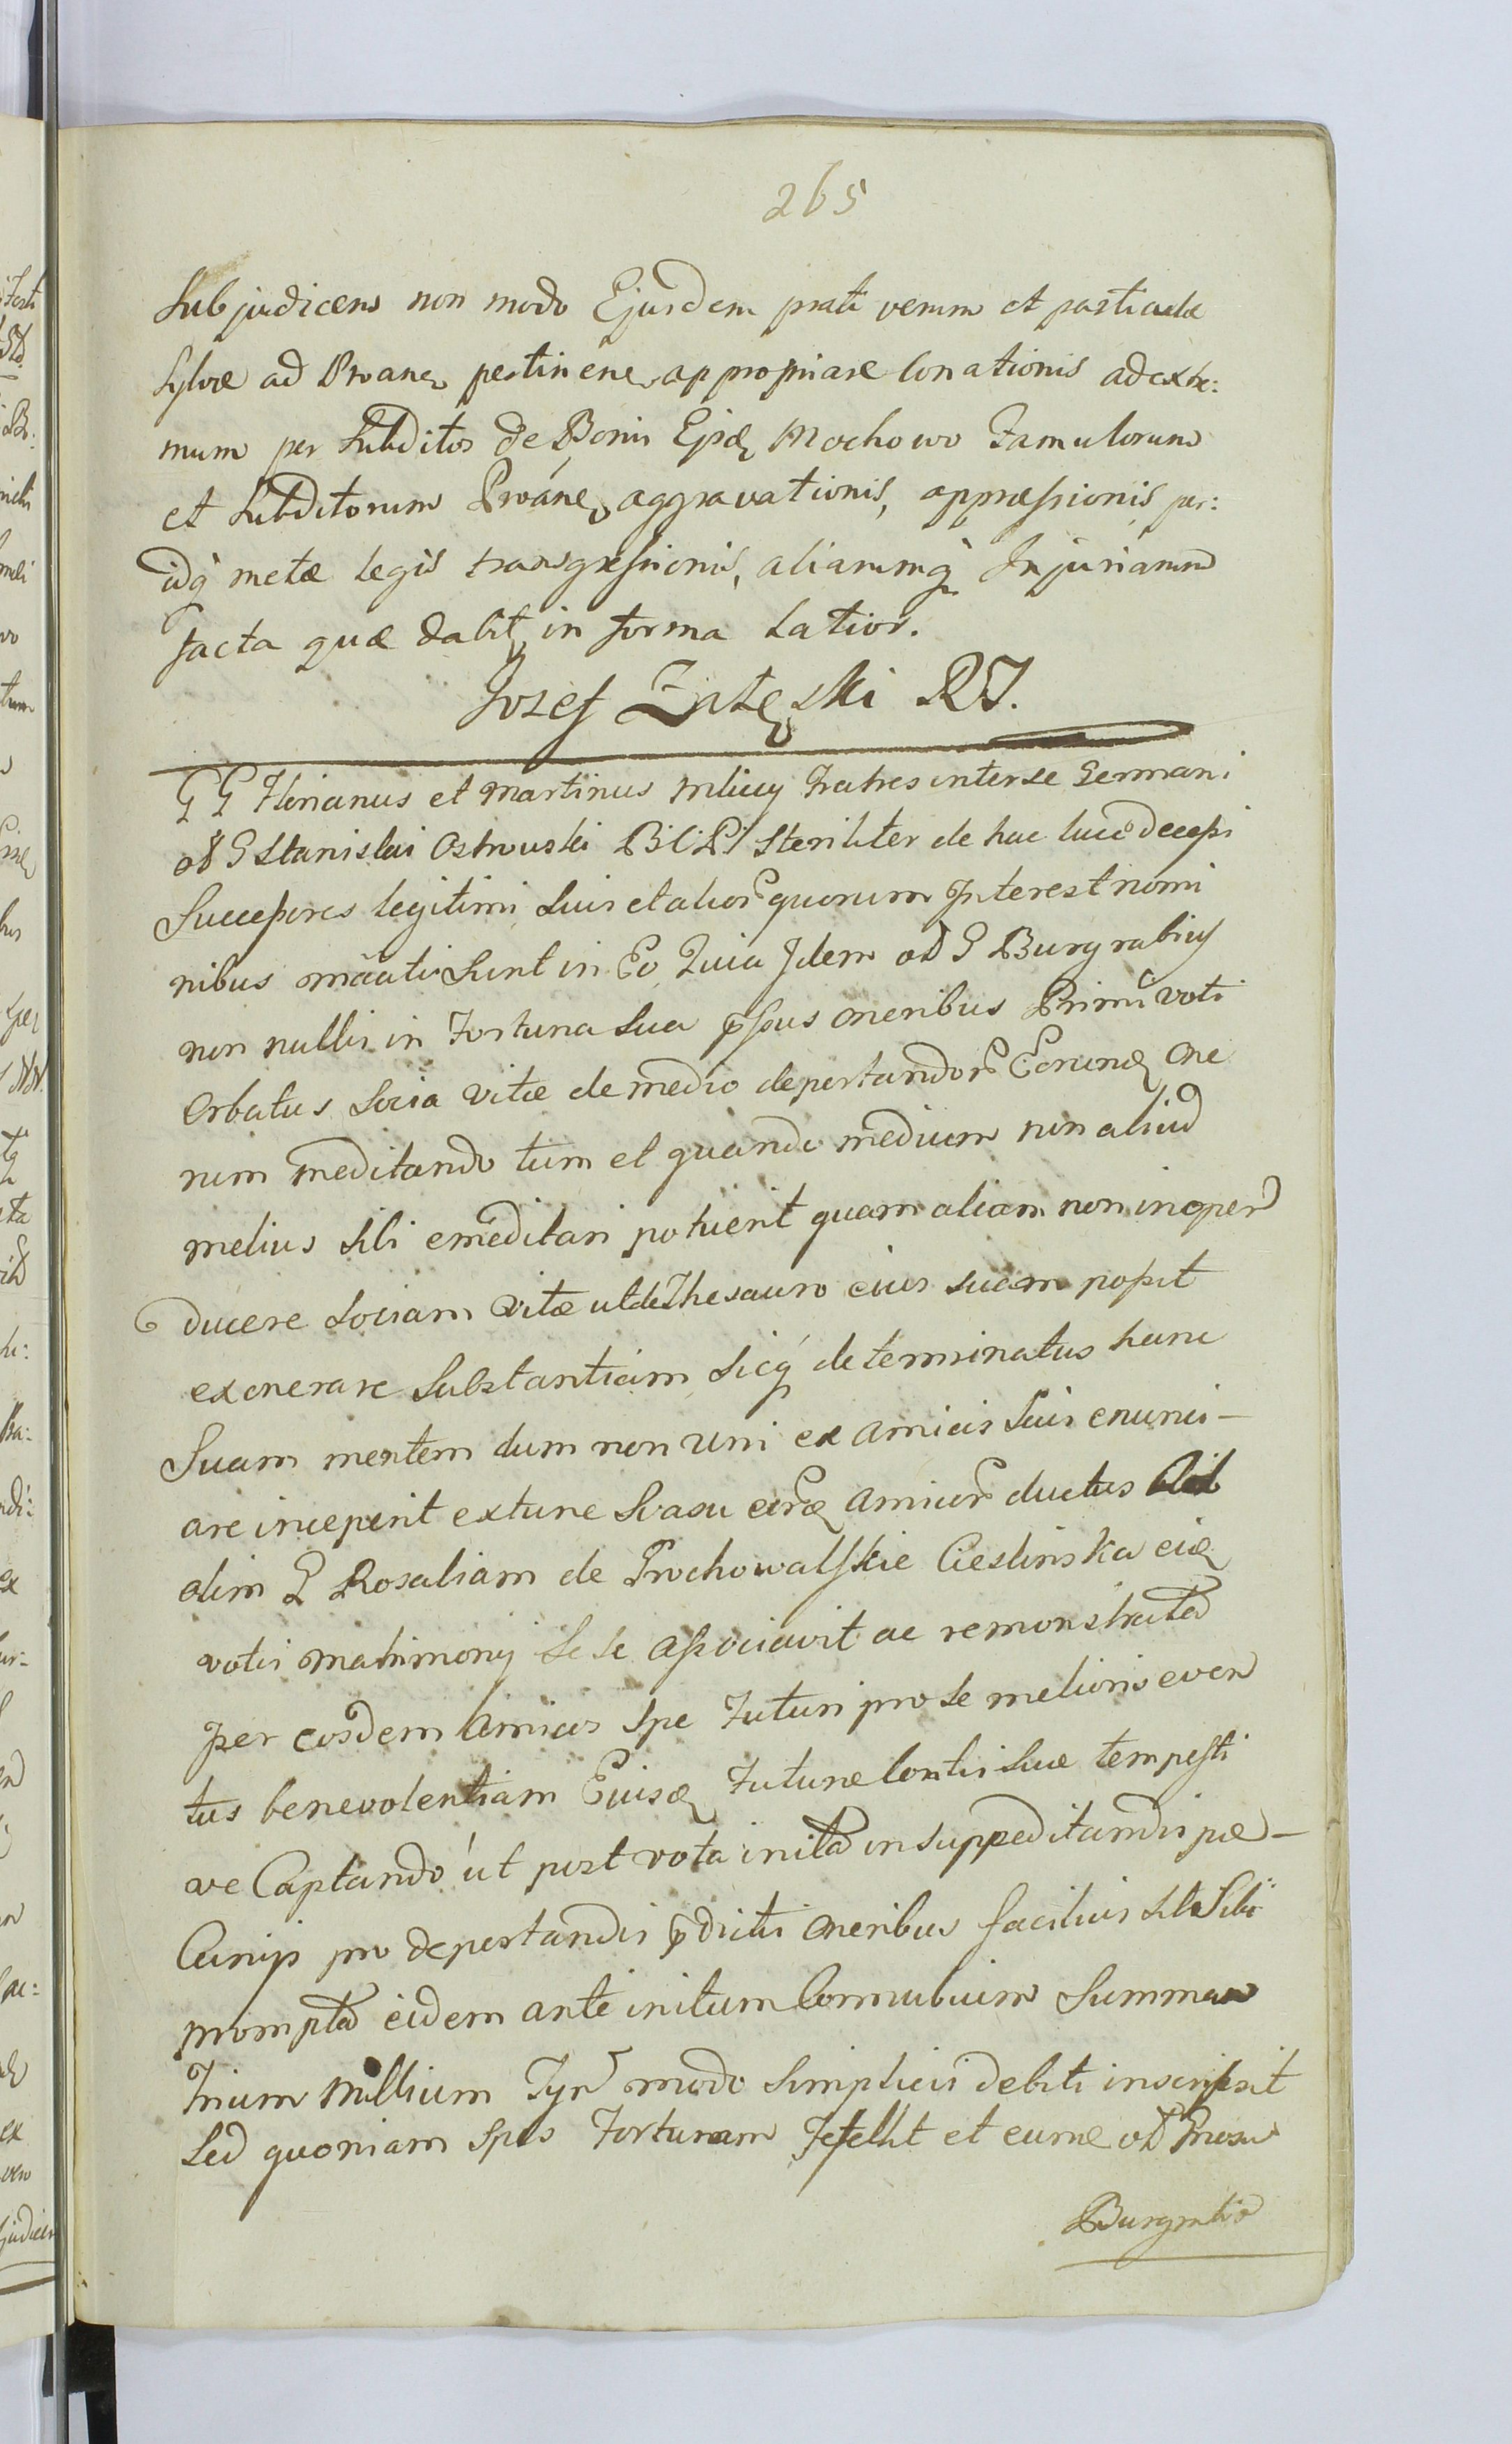 265
Subjudicem non modo Ejusdem prati verum et particula
Sylvæ ad Proane pertinene appropriare conationis ad extre:
mum per Subditos de Bonis Ejsd Mochowo Famulorum
et Subditorum Proáne aggravationis, appræssionis per:
idq metæ legis transgressionis, aliarumq Injuriarum
facta quæ dabit in forma latior.
Jozef Załęski RJ.
G G Florianus et Martinus Mlicy Fratres inter se Germani
Stanislai Ostrowski steriliter de hac luce decessi
Successores legitimi Suis et alior quorum Interest nomi
nibus mãati Sunt in Eo Quia Idem od G Burgrabius
non nullis in Fortuna Sua pssus oneribus Primi voti
Orbatus Socia vitæ de medio deportandor one
rum meditando tum et quando medium non aliud
melius Sibi emeditari potuerit quam aliam non inoper
ducere Sociam vitæ ut de Thesauro eius suam possit
exonerare Substantiam Sicq determinatus hanc
Suam mentem dum non uni ex amicis Suis enunci-
are inceperit extunc Svasu amicor ductus
olim G Rosaliam de Prochowalskie Cieslinska
votis matrimonij Se se associavit ac remonstrata
per eosdem amicos Spe Futuri pro Se melioris even
tus benevolentiam Futuræ Contis Suæ tempesti
ve Captando ut post vota inita in suppeditandis pe-
Cunijs pro deportandis pdictis oneribus facilius sit Sibi
prompta eidem ante initum Connubium Summam
Trium Millium modo Simplicis debiti inscripsit
Sed quoniam Spes Fortunam Fefellit et od
Burgrabio